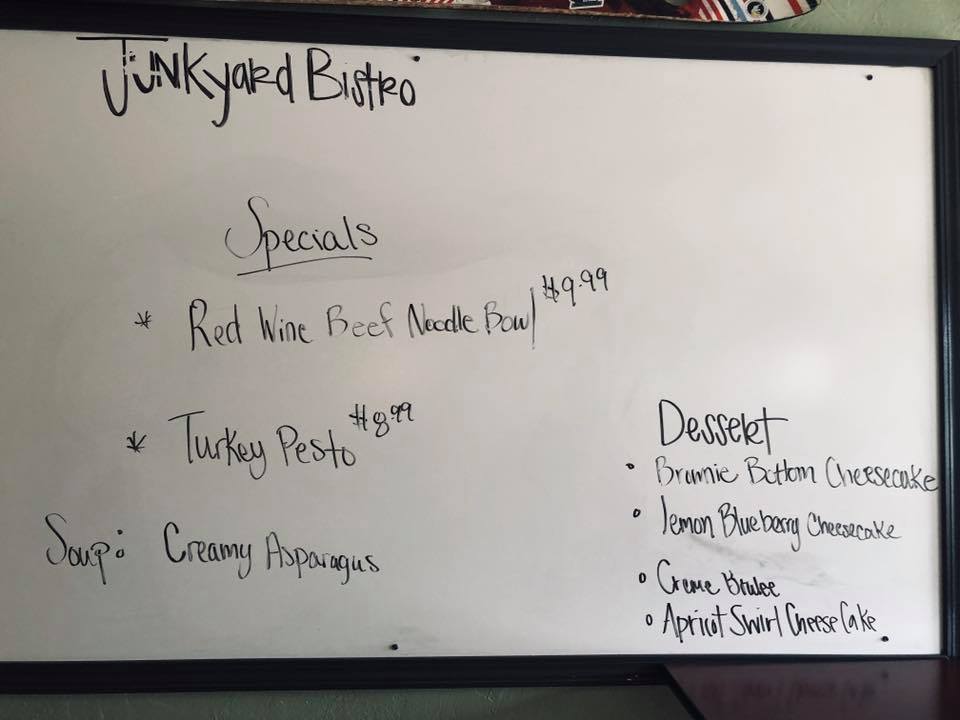 Junkyard Bistro
Specials
* Red Wine Beef Noodle Bowl $9.99
* Turkey Pesto $8.99
Soup: Creamy Asparagus
Dessert
• Brownie Bottom Cheesecake
• lemon Blueberry Cheesecake
• Creme Brulee
• Apricot Swirl Cheese Cake